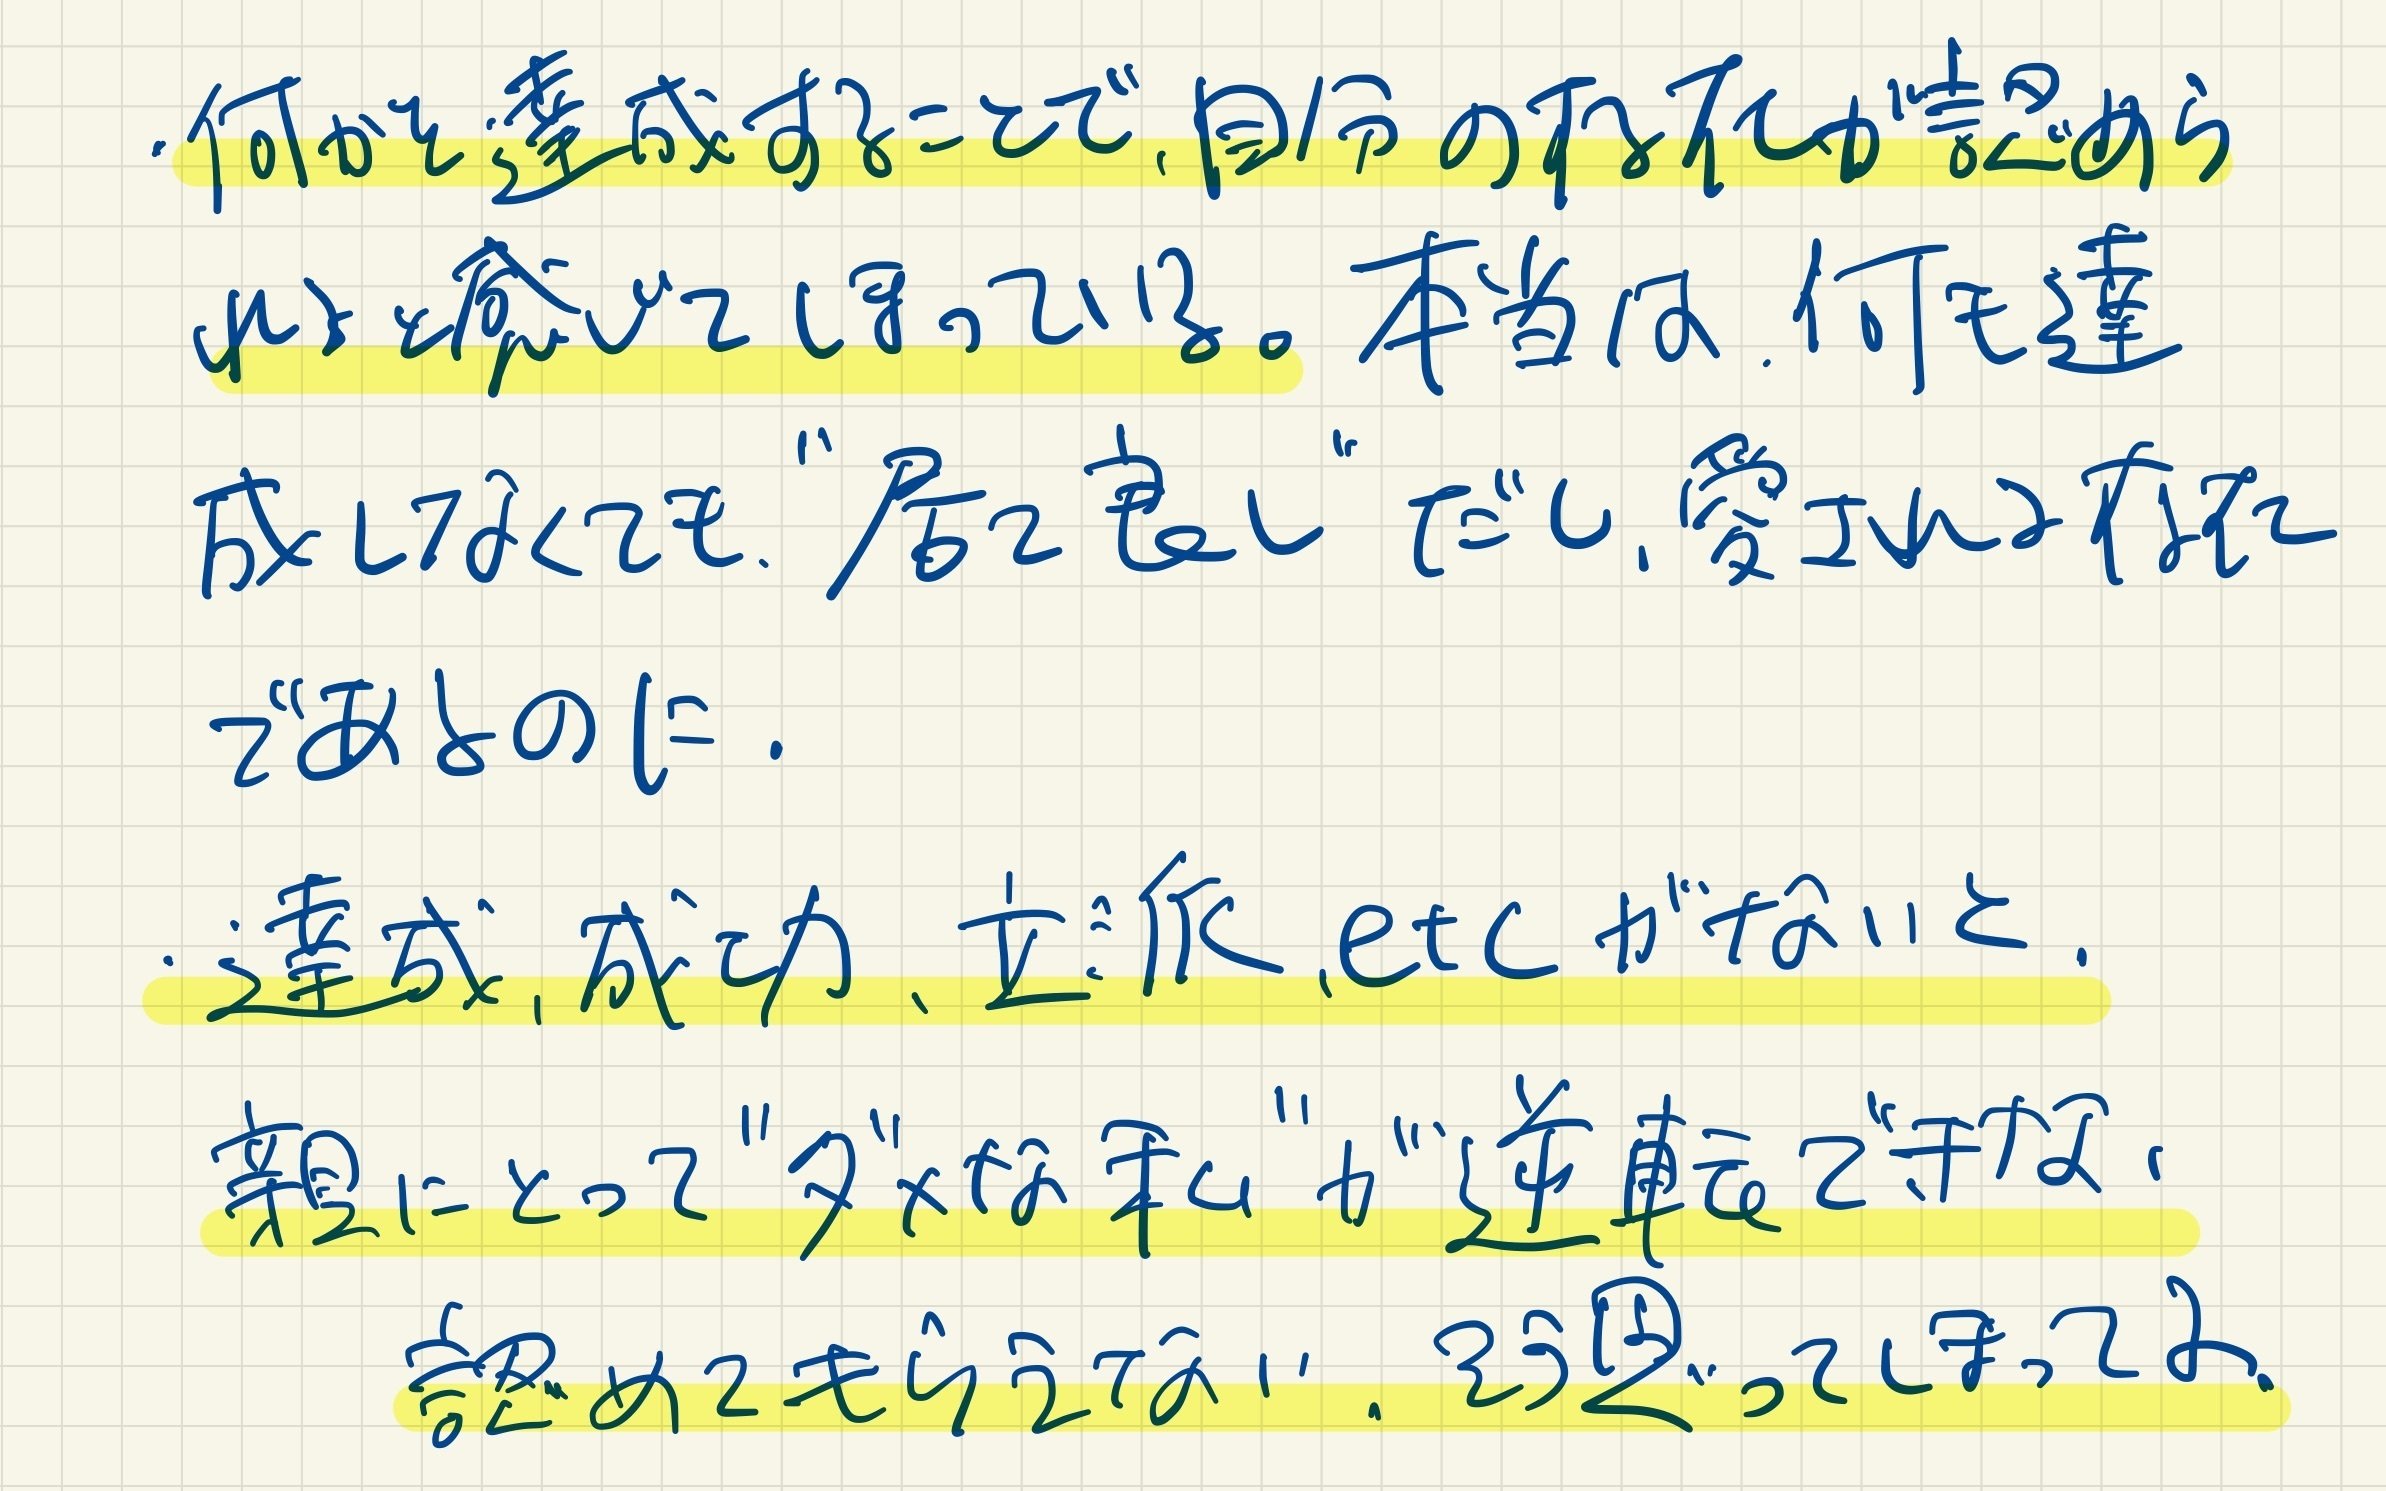 ・何かを達成することで、自分の存在が認めら
れると傷いてしまっている。本当は、何も達
成してなくても、"居て良い"だし、愛される存在
であるのに、
・達成、成功、正し、etcがないと、
親にとって"ダメな子"が"逆転できない、
認めてもらえない、そう思ってしまってる、